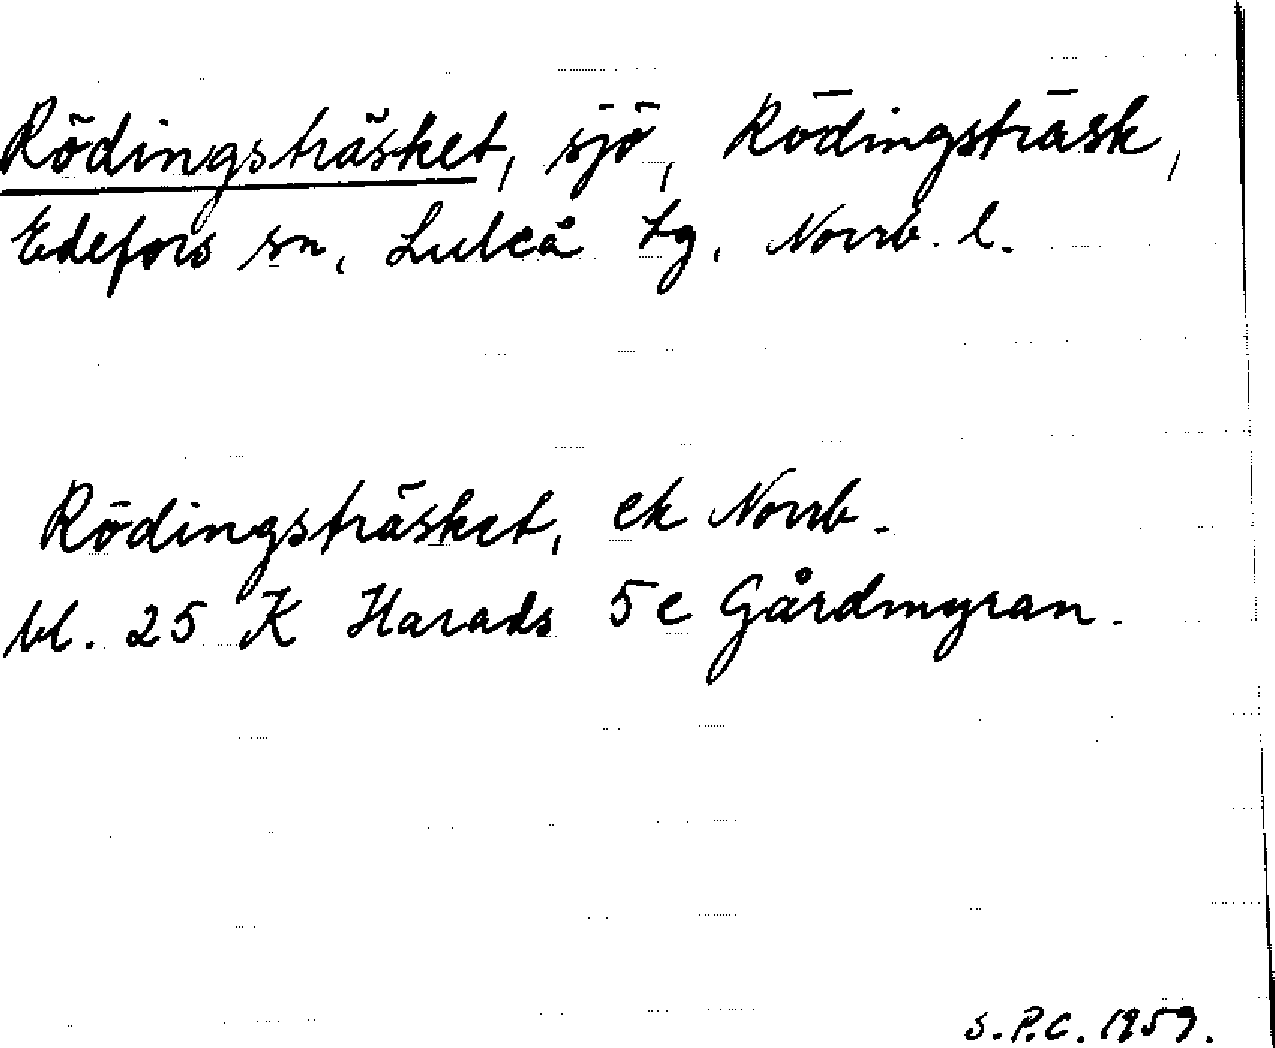 Rödingsträsket, sjö, Rödingsträsk,
Edefors sn, Luleå tg. Norrb. l.
Rödingsträsket, ek Norrb.
bl. 25 K Harads 5e Gårdmyran.
S.P.C. 1959.